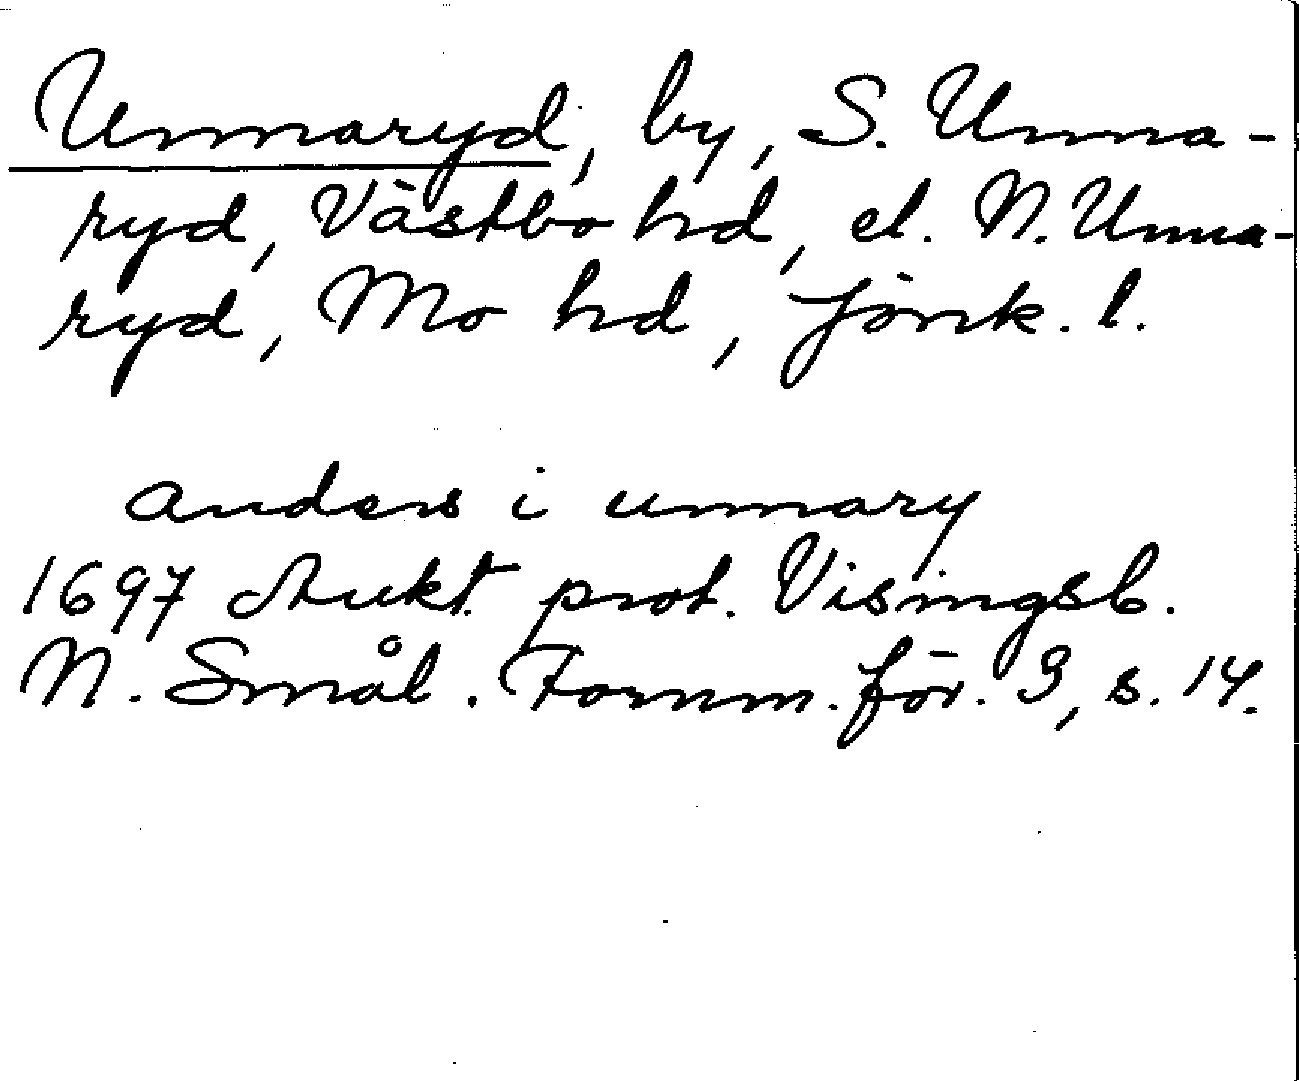 Unnaryd, by, S. Unna-
ryd, Västbo hd, el. N. Unna-
ryd, Mo hd, Jönk. l.
anders i unnary
1697 Aukt. prot. Visingsb.
N. Smål. Fornm. för. 9, s. 14.